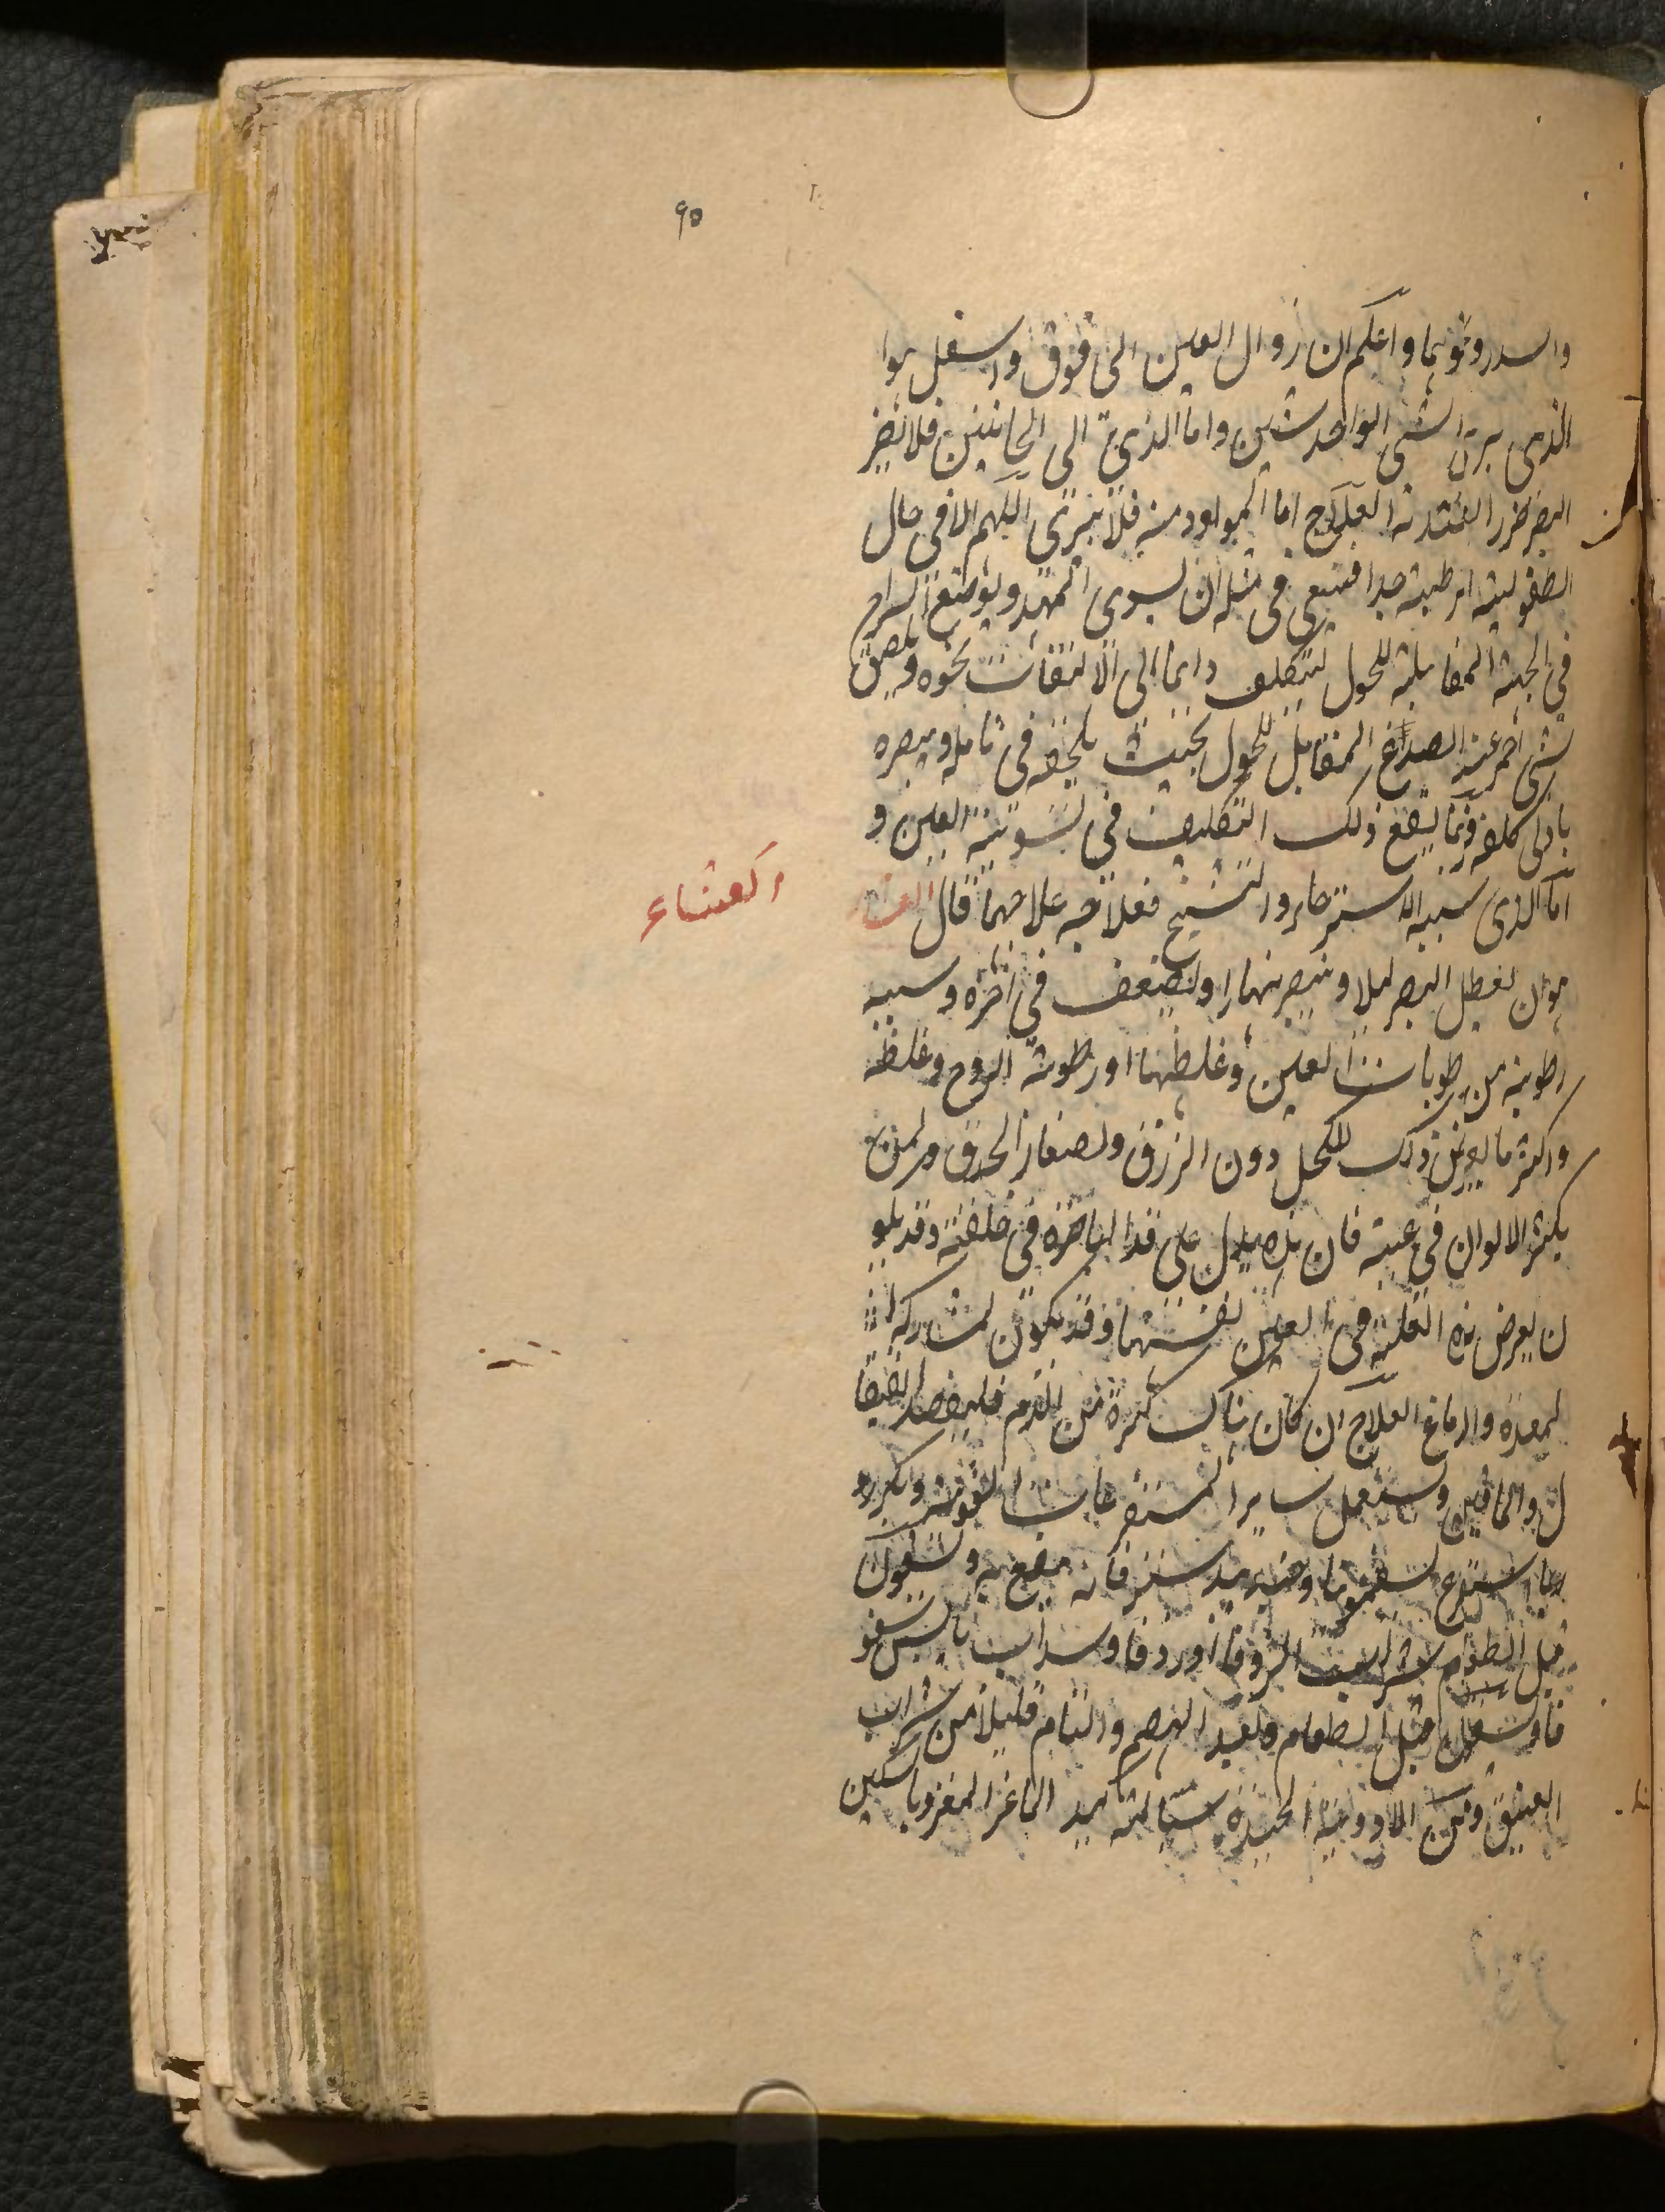 ٩٥
والسدر ونحوهما واعلم ان زوال العين الى فوق واسفل هوا
الذى يرى الشى الواحد شيئين واما الذى الى الجانبين فلا يضر
البصر ضررا العلاج اما المولود منه فلا يبرئ اللهم الا فى حال
الطفولية الرطبة جدا فينبغى فى مثله ان يسوى المهد ويوضع السراج
فى الجهة المقابلة للحول ليتكلف دايما الى الالتفات نحوه ويلصق
شى احمر عند الصدغ المقابل للحول بحيث يلحقه فى تامله ويبصره
بادنى كلفة فربما ينفع ذلك التكليف فى تسوية العين و
اما الذى سببه الاسترخاء والتشنج فعلاجه علاجهما قال
والعشاء
هو ان يعطل البصر ليلا ويبصر نهارا ويضعف فى اخره وسببه
رطوبة من رطوبات العين وغلظها او رطوبة الروح وغلظه
واكثر ما يعرض ذلك للكحل دون الزرق ولصغار الحدق ولمن
يكثر الالوان فى عينه فان هذه يدل على الباصرة فى خلقته وقد
ن يعرض هذه العلة فى العين نفسها وقد يكون لمشاركة
لمعدة والدماغ العلاج ان كان هناك كثرة من الدم فليفصد القيفا
ل والماقين ويستعمل ساير المستفرغات ويكرر
فانه
قبل الطعام شراب الزوفا او زوفا وسداب يابسين سفو
فا ويستعمل قبل الطعام وبعد الهضم والتام قليلا من شراب
العتيق ومن الادوية الجيدة الماعز المغروز بالسكين